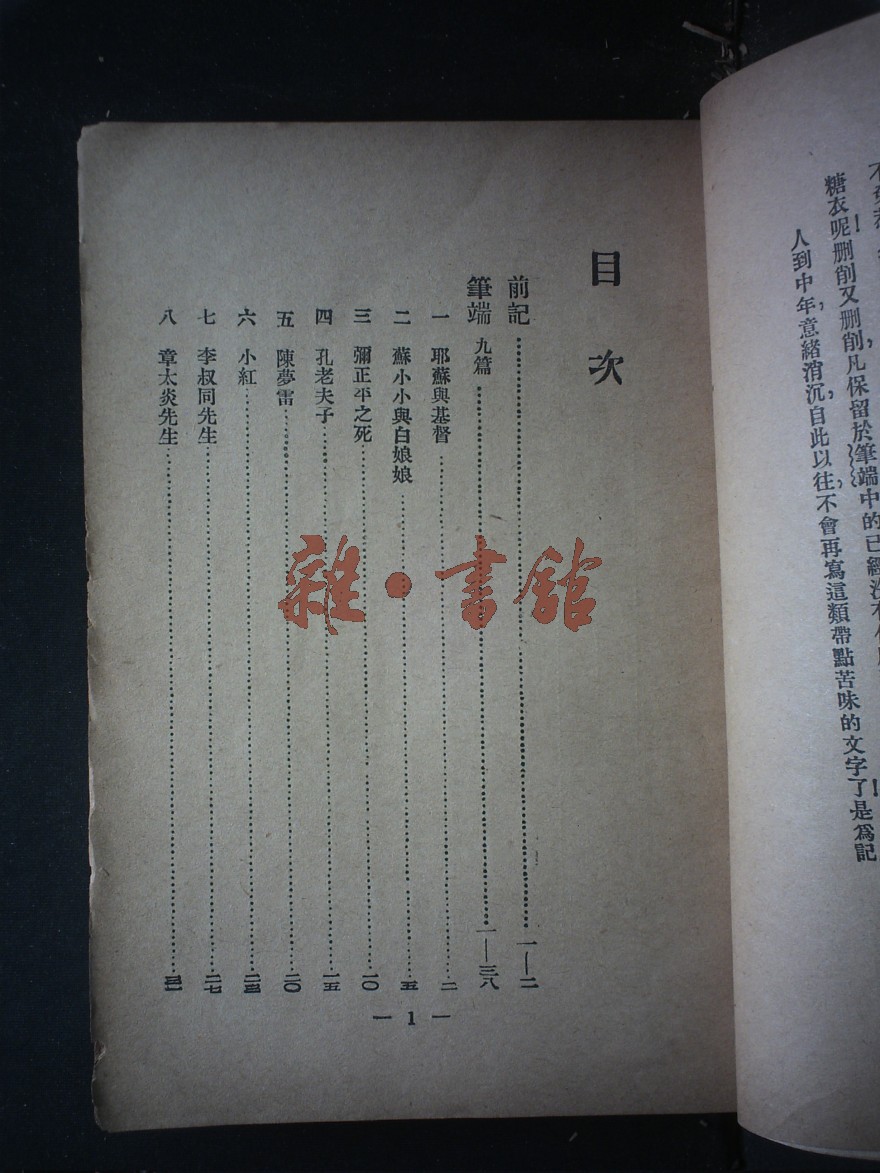 糖衣呢!刪削又刪削,凡保留於筆端中的,已經沒
人到中年,意緒消沉,自此以往,不會再寫這類帶點苦味的文字了!是爲記
目次
前記……一—二
筆端 九篇……一—三八
一 耶蘇與基督……二
二 蘇小小與白娘娘……五
三 彌正平之死……一〇
四 孔老夫子……一五
五 陳夢雷……二〇
六 小紅……二三
七 李叔同先生……二七
八 章太炎先生……
— 1 —
雜·書館